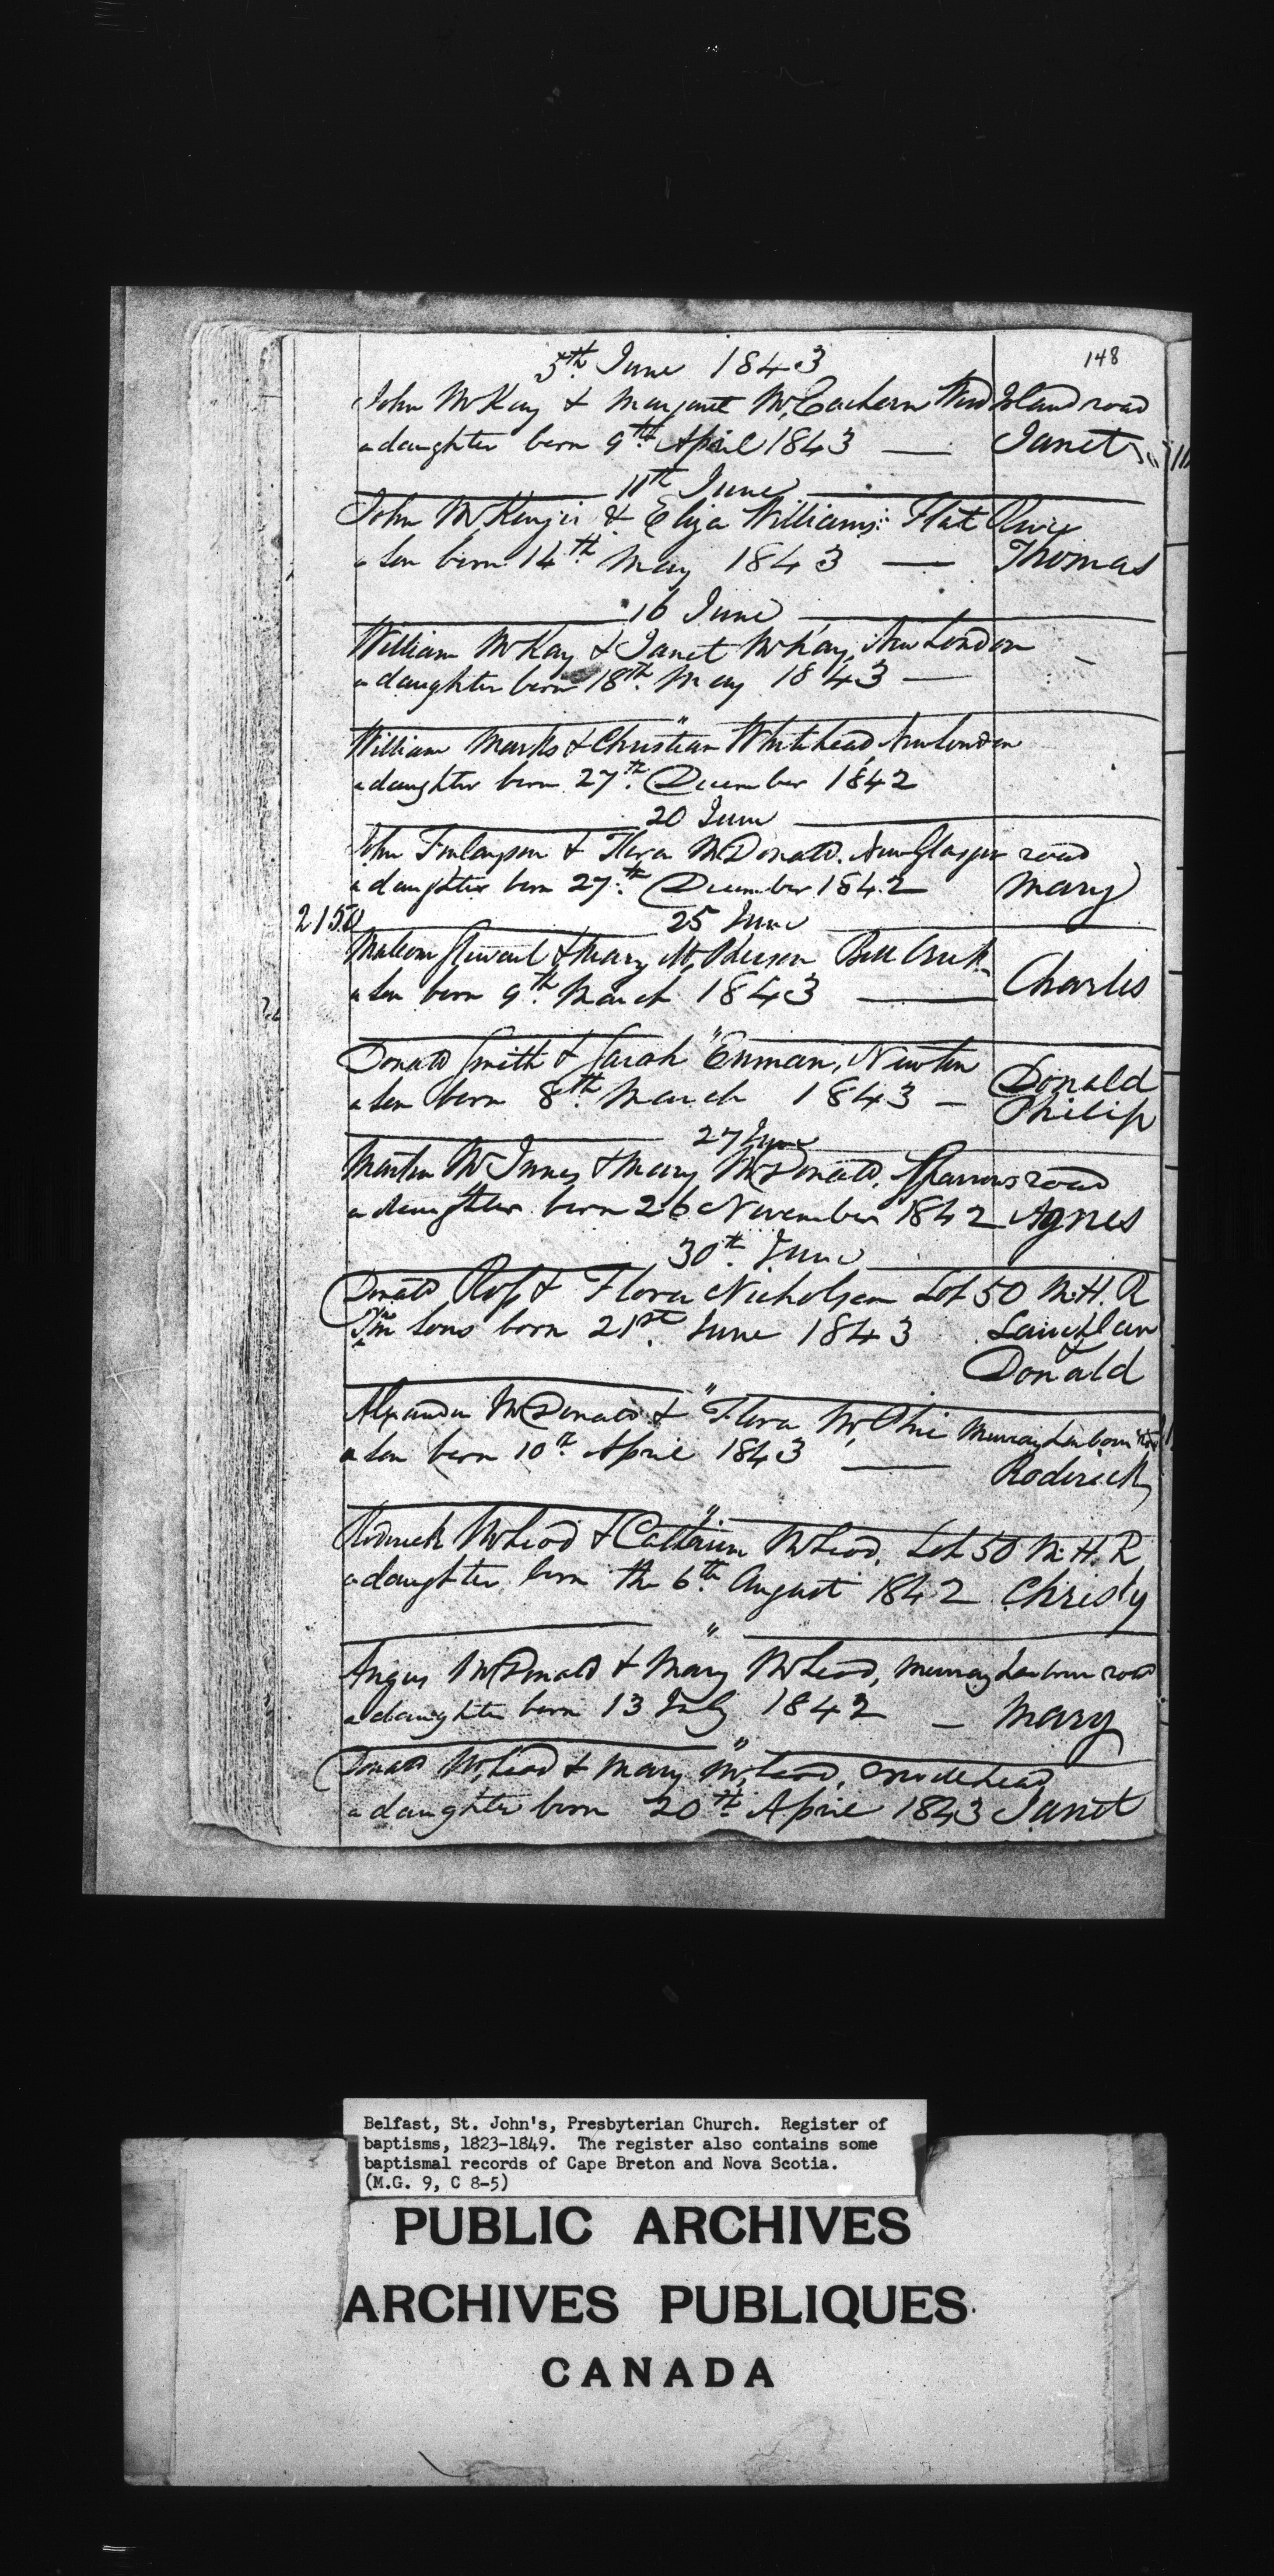 148
5th June 1843
John McKay & Margaret McEachern Wood Island road
a daughter born 9th April 1843 — Janet
11th June
John McKenzie & Eliza Williams Flat River
a son born 14th May 1843 — Thomas
16 June
William McKay & Janet McKay, New London
a daughter born 18th May 1843 —
"
William Marks & Christian Whitehead New London
a daughter born 27th December 1842
20 June
John Finlayson & Flora McDonald. New Glasgow road
a daughter born 27th December 1842 Mary
2150 25 June
Malcom Stewart & Mary McPherson Bell Creek
a son born 9th March 1843 — Charles
"
Donald Smith & Sarah Enman, Newton
a son born 8th March 1843 — Donald
Philip
27 June
Martin McInnes & Mary McDonald. Sparrows road
a daughter born 26 November 1842 Agnes
30th June
Donald Ross & Flora Nicholson Lot 50 M.H.R
Twin sons born 21st June 1843 Lauchlan
&
Donald
"
Alexander McDonald & Flora McPhie Murray Harbour
a son born 10th April 1843 — Roderick
"
Roderick McLeod & Catherine McLeod. Lot 50 M.H.R
a daughter born the 6th August 1842 Christy
"
Angus McDonald & Mary McLeod, Murray Harbour road
a daughter born 13 July 1842 — Mary
"
Donald McLeod & Mary McLeod,
a daughter born 20th April 1843 Janet
Belfast, St. John's, Presbyterian Church. Register of
baptisms, 1823-1849. The register also contains some
baptismal records of Cape Breton and Nova Scotia.
(M.G. 9, C 8-5)
PUBLIC ARCHIVES
ARCHIVES PUBLIQUES
CANADA